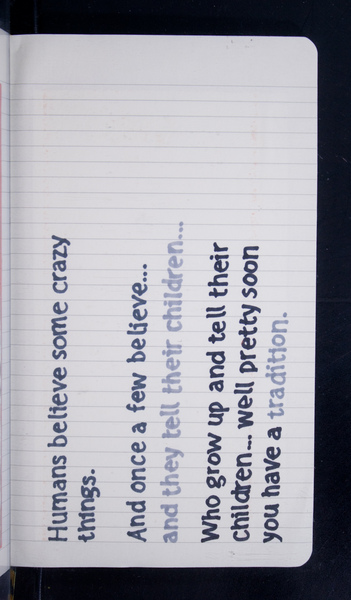 Humans believe some crazy
things.
And once a few believe...
and they tell their children...
Who grow up and tell their
children... well pretty soon
you have a tradition.